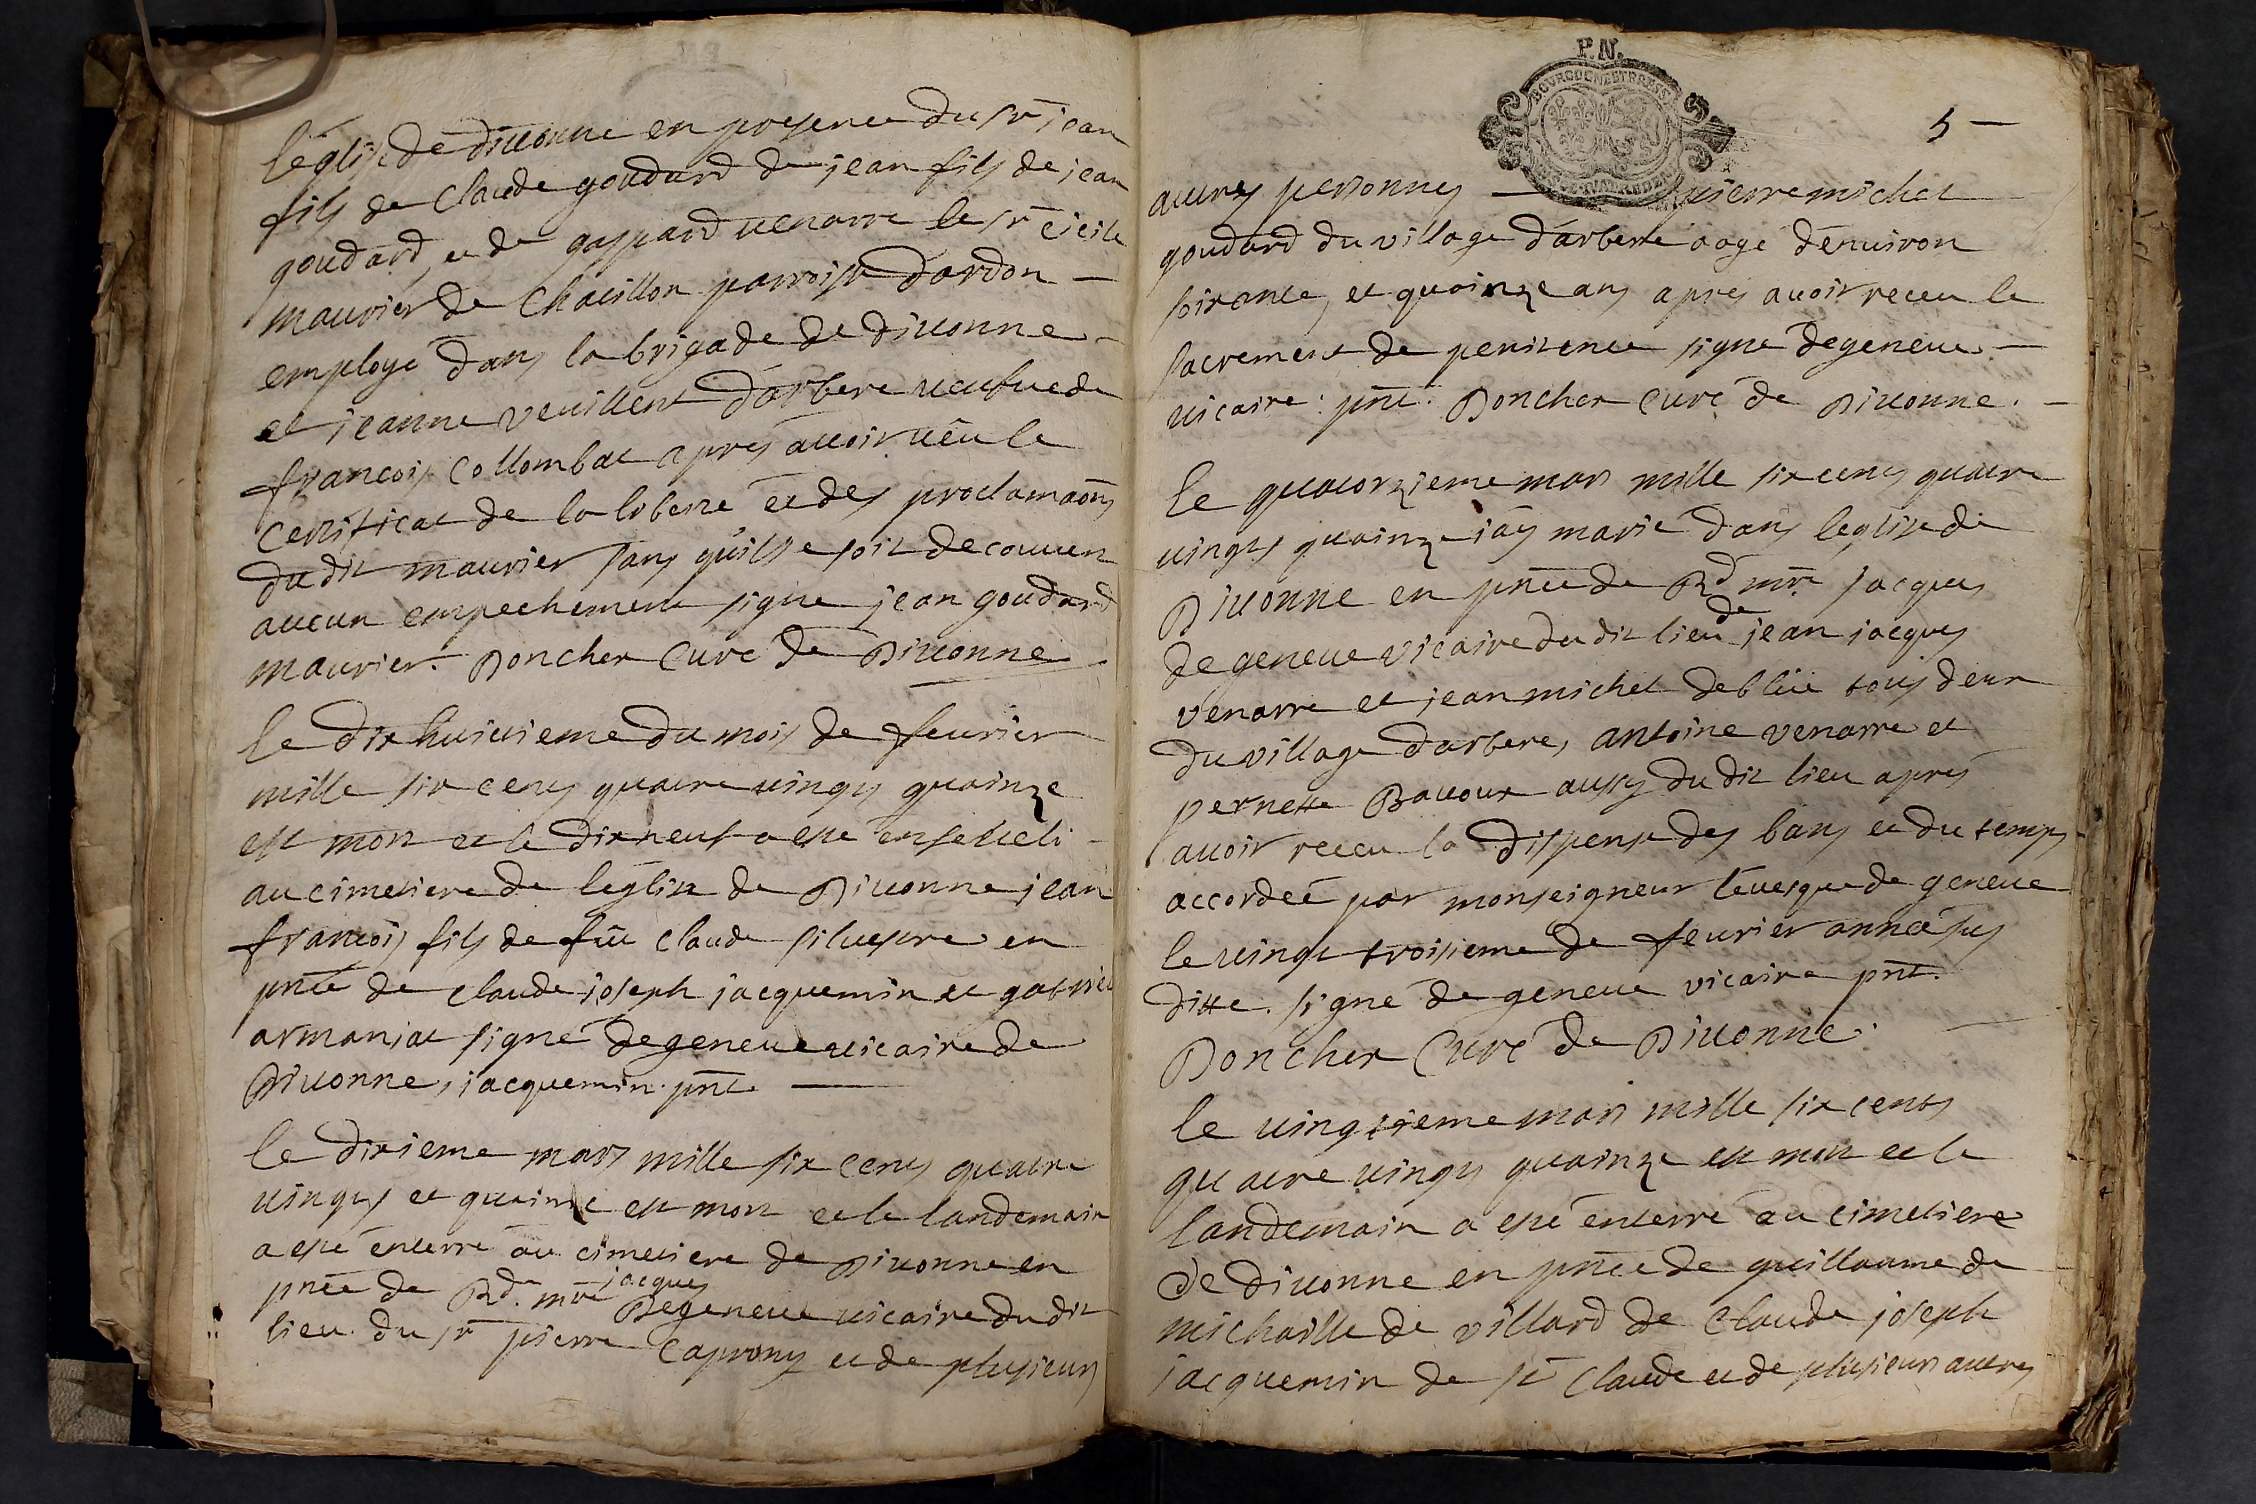 léglise de divonne en presence du sr jean
fils de Claude goudard de jean fils de jean
goudard, et de gaspard venarre le sr
maurier de Chatillon parroisse d'ardon
employé dans la brigade de divonne
et jeanne veuillent d'arbere veufve de
françois Collombat apres avoir veu le
certificat de la liberté et des proclamaons
du dit maurier sans qu'il se soit decouvert
aucun empechement signe jean goudard
maurier. Doncher Curé de Divonne
le dix huitieme du mois de fevrier
mille six cents quatre vingts quainze
est mort et le dixneuf a este enseveli
au cimetiere de léglise de Divonne jean
françois fils de feu Claude silvestre en
pnce de claude joseph jacquemin et gabriel
armaniat signé degeneve vicaire de
Divonne, jacquemin pnt.
le dixieme mars mille six cents quatre
vingts et quainze est mort et le landemain
a esté énterré au cimetiere de Divonne en
pnce de Rd. mre jacques Degeneve vicaire du dit
lieu du sr pierre Caprony et de plusieurs
P.N.
5
autres personnes — pierre michel
goudard du village d'arbere aagé d'environ
soixante, et quainze ans apres avoir receu le
sacrement de penitence signe degeneve
vicaire pnt. Doncher Curé de Divonne.
le quatorzieme mars mille six cents quatre
vingts quainze iay marié dans leglise de
Divonne en pnce de Rd mre jacques
de geneve vicaire du dit lieu de jean jacques
venarre et jean michel deblüe tous deux
du village d'arbere, antoine venarre et
pernette Bavoux aussy du dit lieu après
avoir receu la dispense des bans et du temps
accordée par monseigneur lévesque de geneve
le vingt troisieme de fevrier année sus
ditte. signé de geneve vicaire pnt.
Doncher Curé de Divonne.
le vingtieme mars mille six cents
quatre vingts quainze est mort et le
landemain a esté énterré au cimetiere
de divonne en pnce de guillaume de
michaille de villard de Claude joseph
jacquemin de st Claude et de plusieurs autres